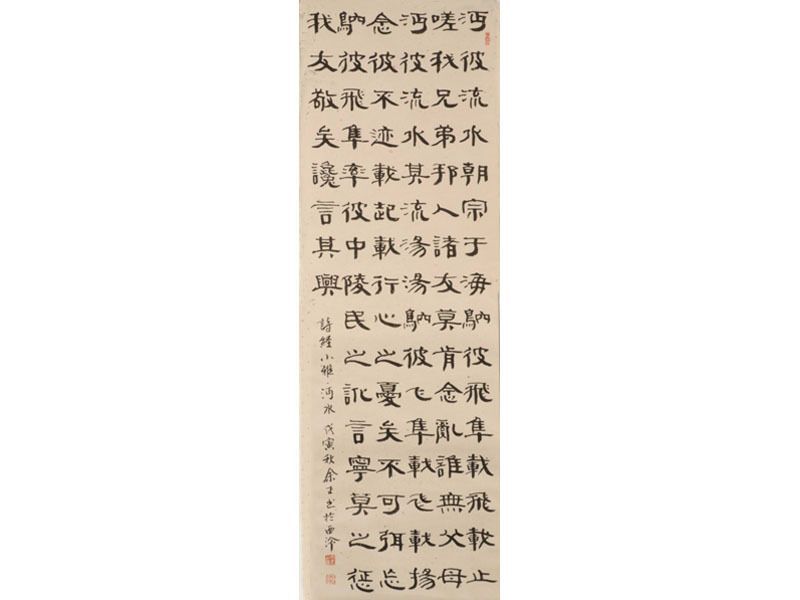 沔彼流水朝宗于海鴥彼飛隼載飛載止
嗟我兄弟邦人諸友莫肯念亂誰無父母
沔彼流水其流湯湯鴥彼飞隼載飞載揚
念彼不迹載起載行心之憂矣不可弭忘
鴥彼飛隼率彼中陵民之訛言寧莫之懲
我友敬矣讒言其興
詩經小雅 沔水 戊寅秋余正书於西泠